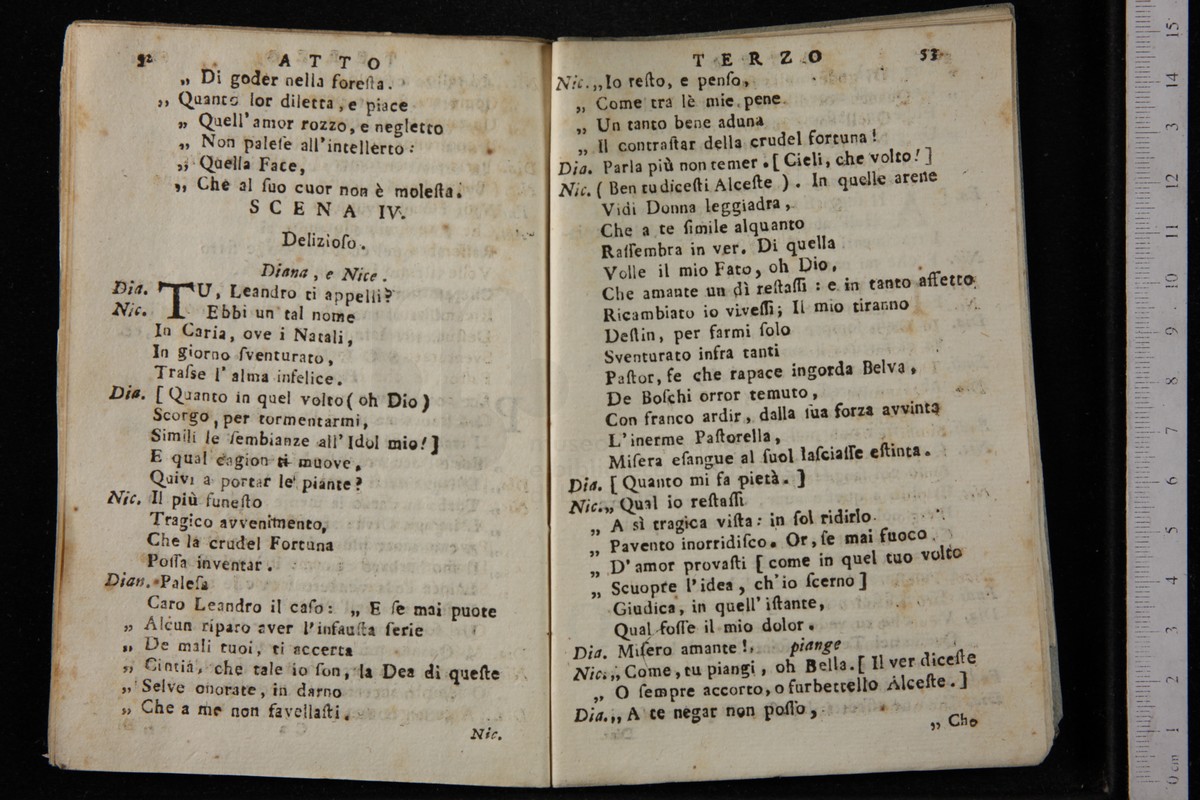 52
ATTO
„ Di goder nella foreſta.
„ Quanto lor diletta, e piace
„ Quell'amor rozzo, e negletto
„ Non paleſe all'intelletto:
„ Quella Face,
„ Che al ſuo cuor non è moleſta.
SCENA IV.
Delizioſo.
Diana, e Nice.
Dia. TU, Leandro ti appelli?
Nic. Ebbi un tal nome
In Caria, ove i Natali,
In giorno ſventurato,
Traſse l'alma infelice.
Dia. [ Quanto in quel volto ( oh Dio )
Scorgo, per tormentarmi,
Simili le ſembianze all'Idol mio! ]
E qual cagion ti muove,
Quivi a portar le piante?
Nic. Il più funeſto
Tragico avvenimento,
Che la crudel Fortuna
Poſſa inventar.
Dian. Paleſa
Caro Leandro il caſo: „ E ſe mai puote
„ Alcun riparo aver l'infauſta ſerie
„ De mali tuoi, ti accerta
„ Cintia, che tale io ſon, la Dea di queſte
„ Selve onorate, in darno
„ Che a me non favellaſti.
Nic.
TERZO
53
Nic. „ Io reſto, e penſo,
„ Come tra lè mie pene
„ Un tanto bene aduna
„ Il contraſtar della crudel fortuna!
Dia. Parla più non temer. [ Cieli, che volto! ]
Nic. ( Ben tu diceſti Alceſte ). In quelle arene
Vidi Donna leggiadra,
Che a te ſimile alquanto
Raſſembra in ver. Di quella
Volle il mio Fato, oh Dio,
Che amante un dì reſtaſſi: e in tanto affetto
Ricambiato io viveſſi; Il mio tiranno
Deſtin, per farmi ſolo
Sventurato infra tanti
Paſtor, fe che rapace ingorda Belva,
De Boſchi orror temuto,
Con franco ardir, dalla ſua forza avvinta
L'inerme Paſtorella,
Miſera eſangue al ſuol laſciaſſe eſtinta.
Dia. [ Quanto mi fa pietà. ]
Nic. „ Qual io reſtaſſi
„ A sì tragica viſta: in ſol ridirlo
„ Pavento inorridiſco. Or, ſe mai fuoco
„ D'amor provaſti [ come in quel tuo volto
„ Scuopre l'idea, ch'io ſcerno ]
Giudica, in quell'iſtante,
Qual foſſe il mio dolor.
Dia. Miſero amante!, piange
Nic. „ Come, tu piangi, oh Bella. [ Il ver diceſte
„ O ſempre accorto, o furbettello Alceſte. ]
Dia. „ A te negar non poſſo,
„ Che